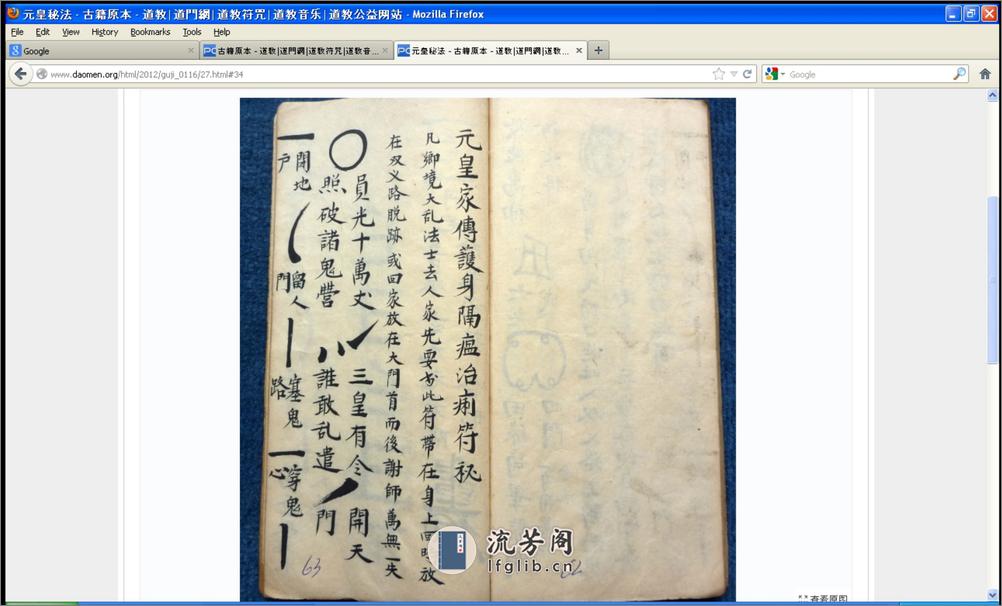 元皇秘法 - 古籍原本 - 道教|道門網|道教符咒|道教音乐|道教公益网站 - Mozilla Firefox
File Edit View History Bookmarks Tools Help
Google
古籍原本 - 道教|道門網|道教符咒|道教音...
元皇秘法 - 古籍原本 - 道教|道門網|道教...
www.daomen.org/html/2012/guji_0116/27.html#34
Google
元皇家傳護身隔瘟治痢符秘
凡鄉境大乱法士去人家先要书此符帶在身上回時放
在双义路脱跡或回家放在大門首而後謝師萬無一失
員光十萬丈 三皇有令 開天
照破諸鬼營 誰敢乱遣 門
開地 留人 塞鬼 穿鬼
户 門 路 心
63
62
流芳阁
lfglib.cn
查看原图